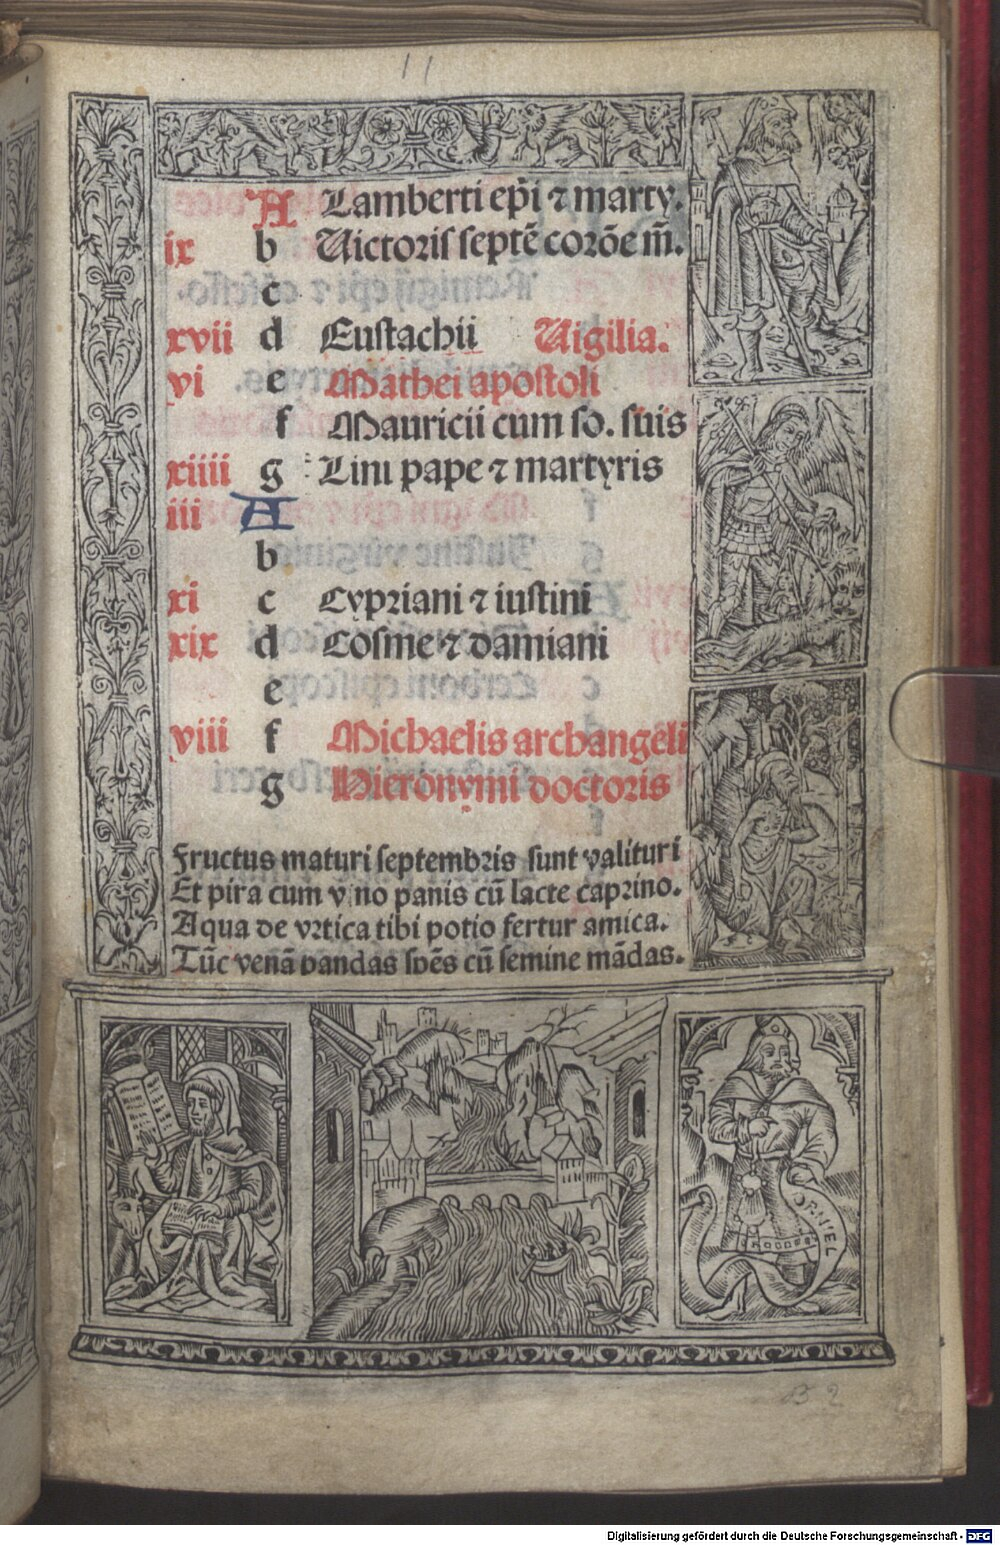 11
A Lamberti ep̄i ⁊ marty.
ix b Victoris septē corōe m̄.
c
xvii d Eustachii Vigilia.
vi e Mathei apostoli
f Mauricii cum so. suis
xiiii g Lini pape ⁊ martyris
iii A
b
xi c Cypriani ⁊ iustini
xix d Cosme ⁊ damiani
e
viii f Michaelis archangeli
g Hieronymi doctoris
Fructus maturi septembris sunt valituri
Et pira cum vino panis cū lacte caprino.
Aqua de vrtica tibi potio fertur amica.
Tūc venā pandas spēs cū semine mādas.
DANIEL
B 2
Digitalisierung gefördert durch die Deutsche Forschungsgemeinschaft - DFG